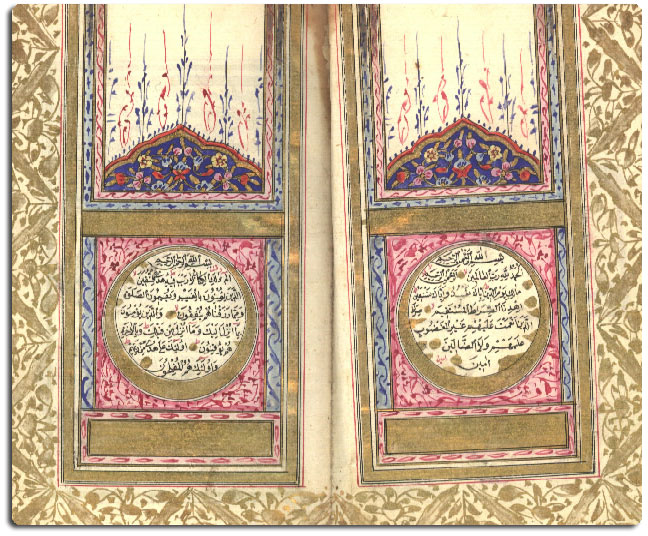 بسم الله الرحمن الرحيم
الحمد لله رب العالمين الرحمن الرحيم
مالك يوم الدين اياك نعبد واياك نستعين
اهدنا الصراط المستقيم صراط
الذين انعمت عليهم غير المغضوب
عليهم ولا الضالين
امين
بسم الله الرحمن الرحيم
الم ذلك الكتاب لا ريب فيه هدى للمتقين
الذين يؤمنون بالغيب ويقيمون الصلوة
ومما رزقناهم ينفقون والذين يؤمنون
بما انزل اليك وما انزل من قبلك وبالاخرة
هم يوقنون اولئك على هدى من ربهم
واولئك هم المفلحون